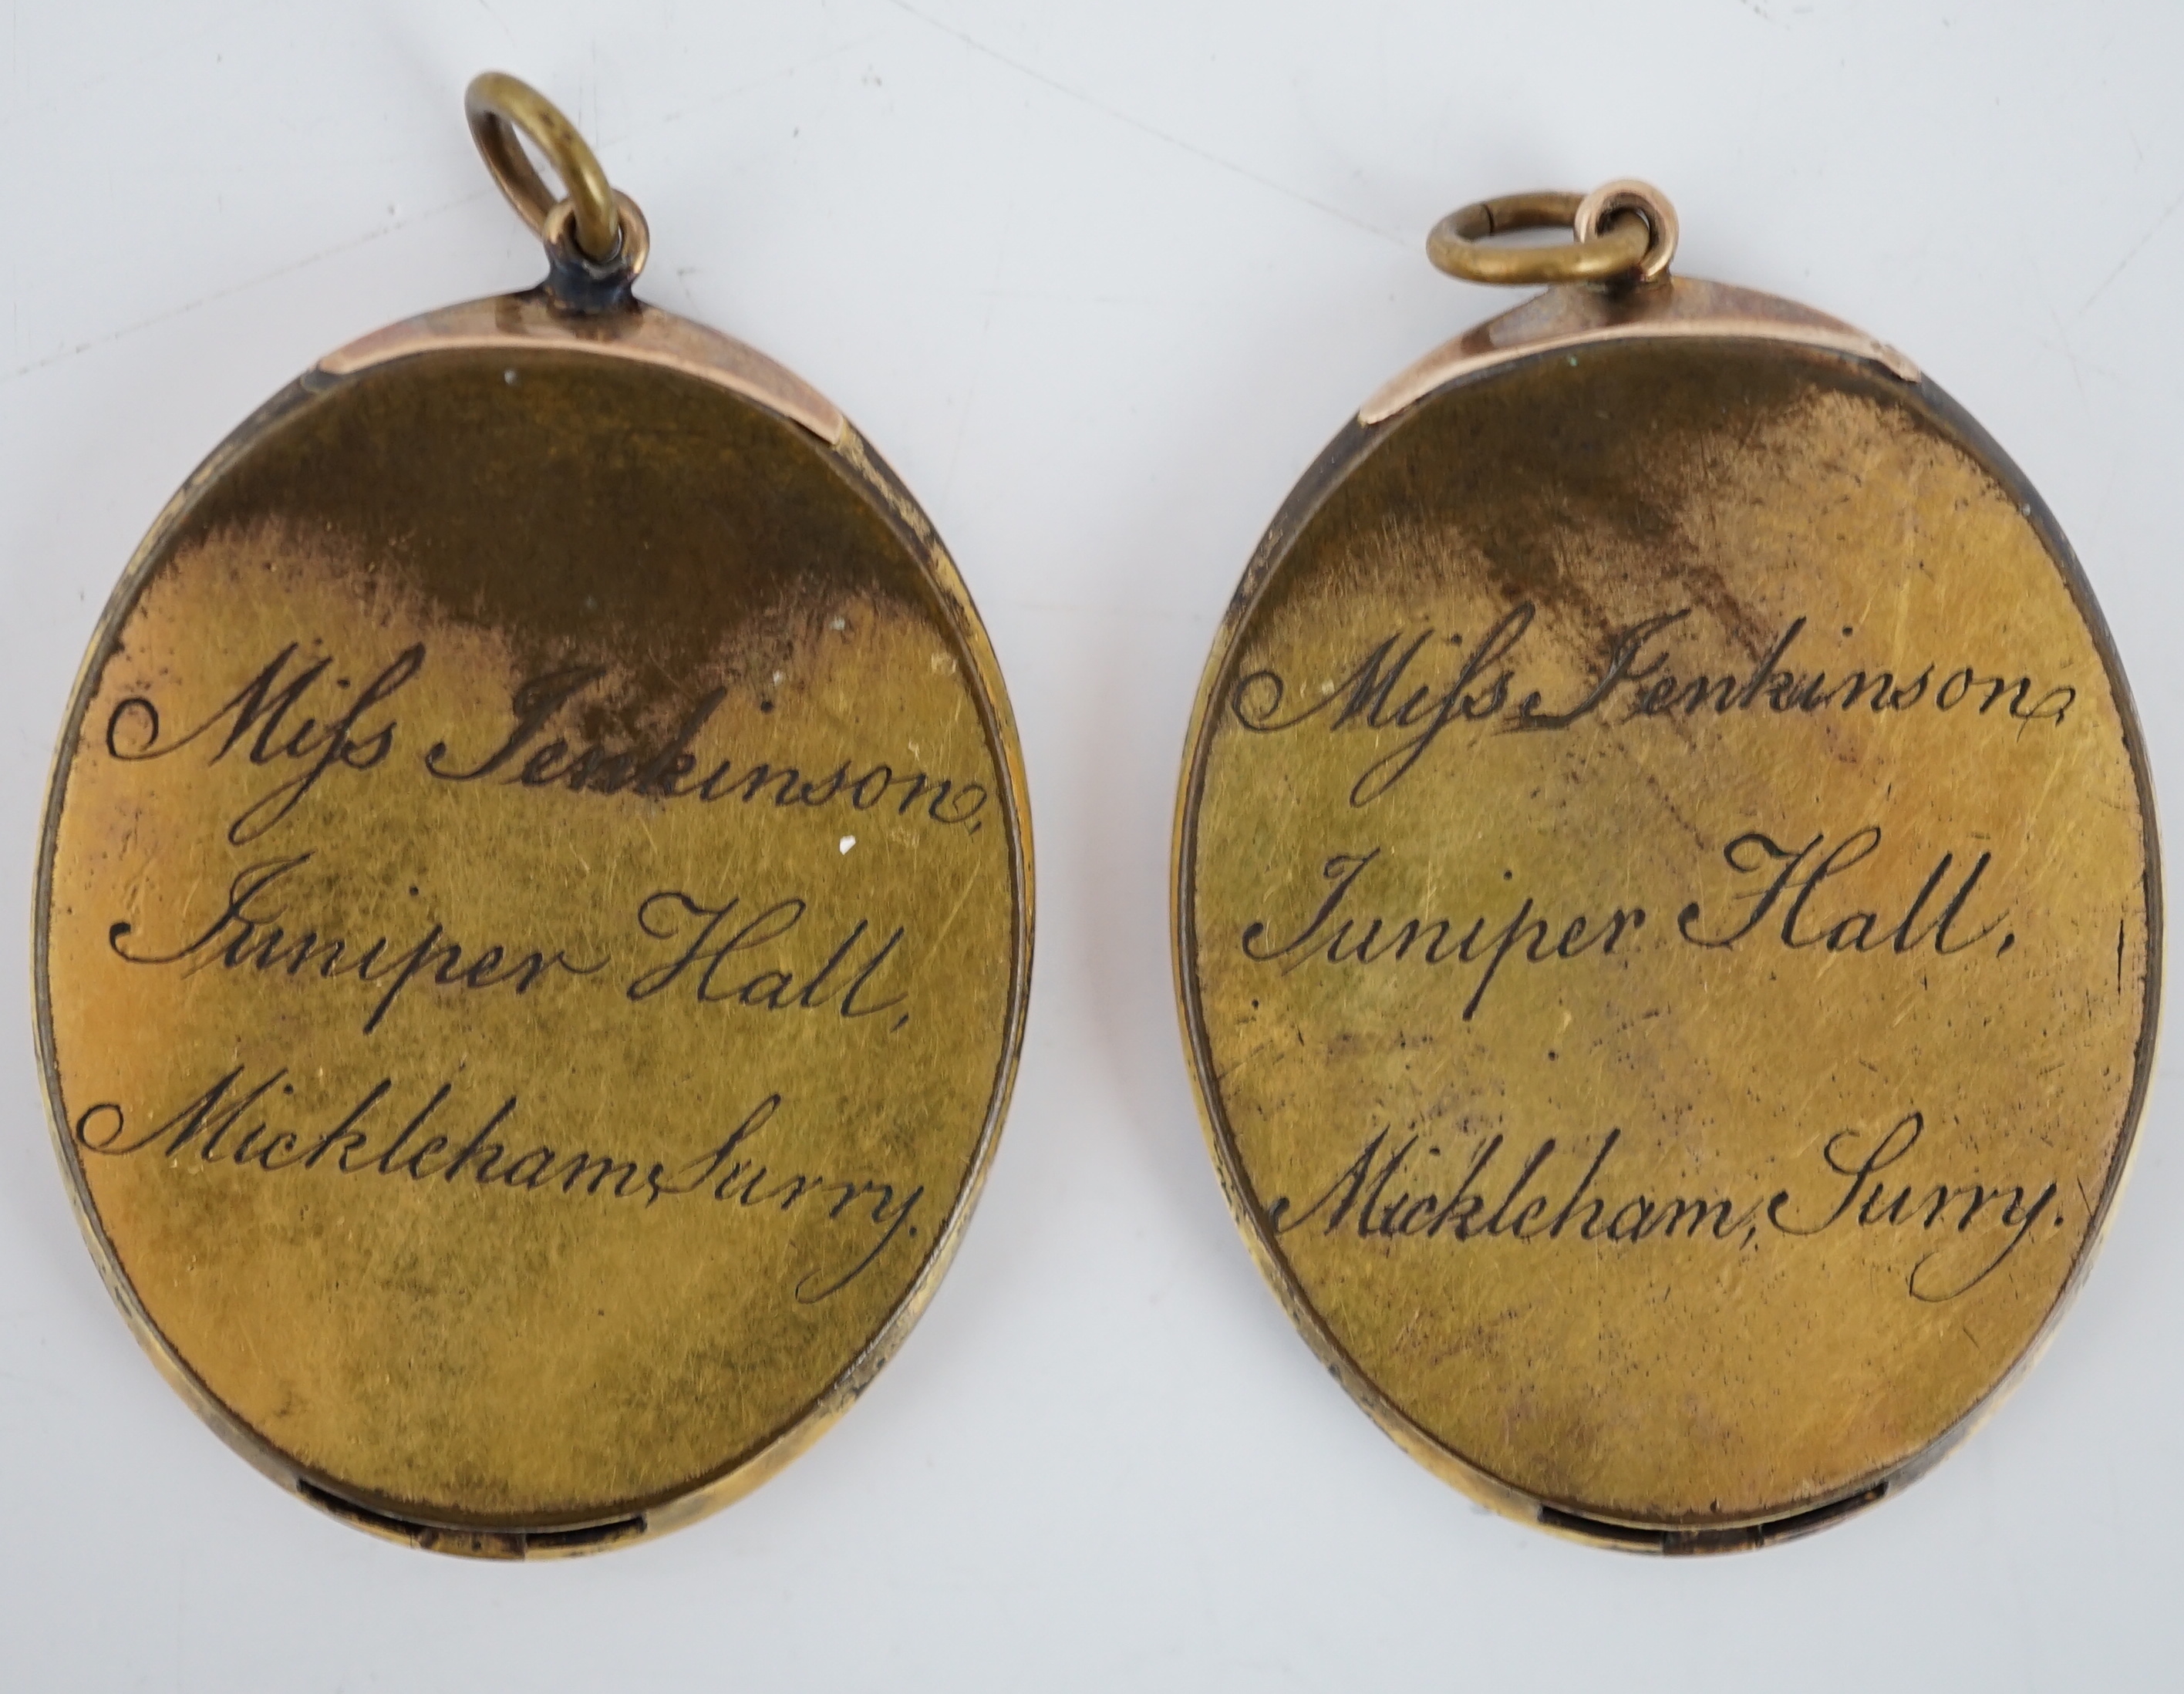 Miſs Jenkinson,
Juniper Hall,
Mickleham, Surry.
Miſs Jenkinson,
Juniper Hall,
Mickleham, Surry.